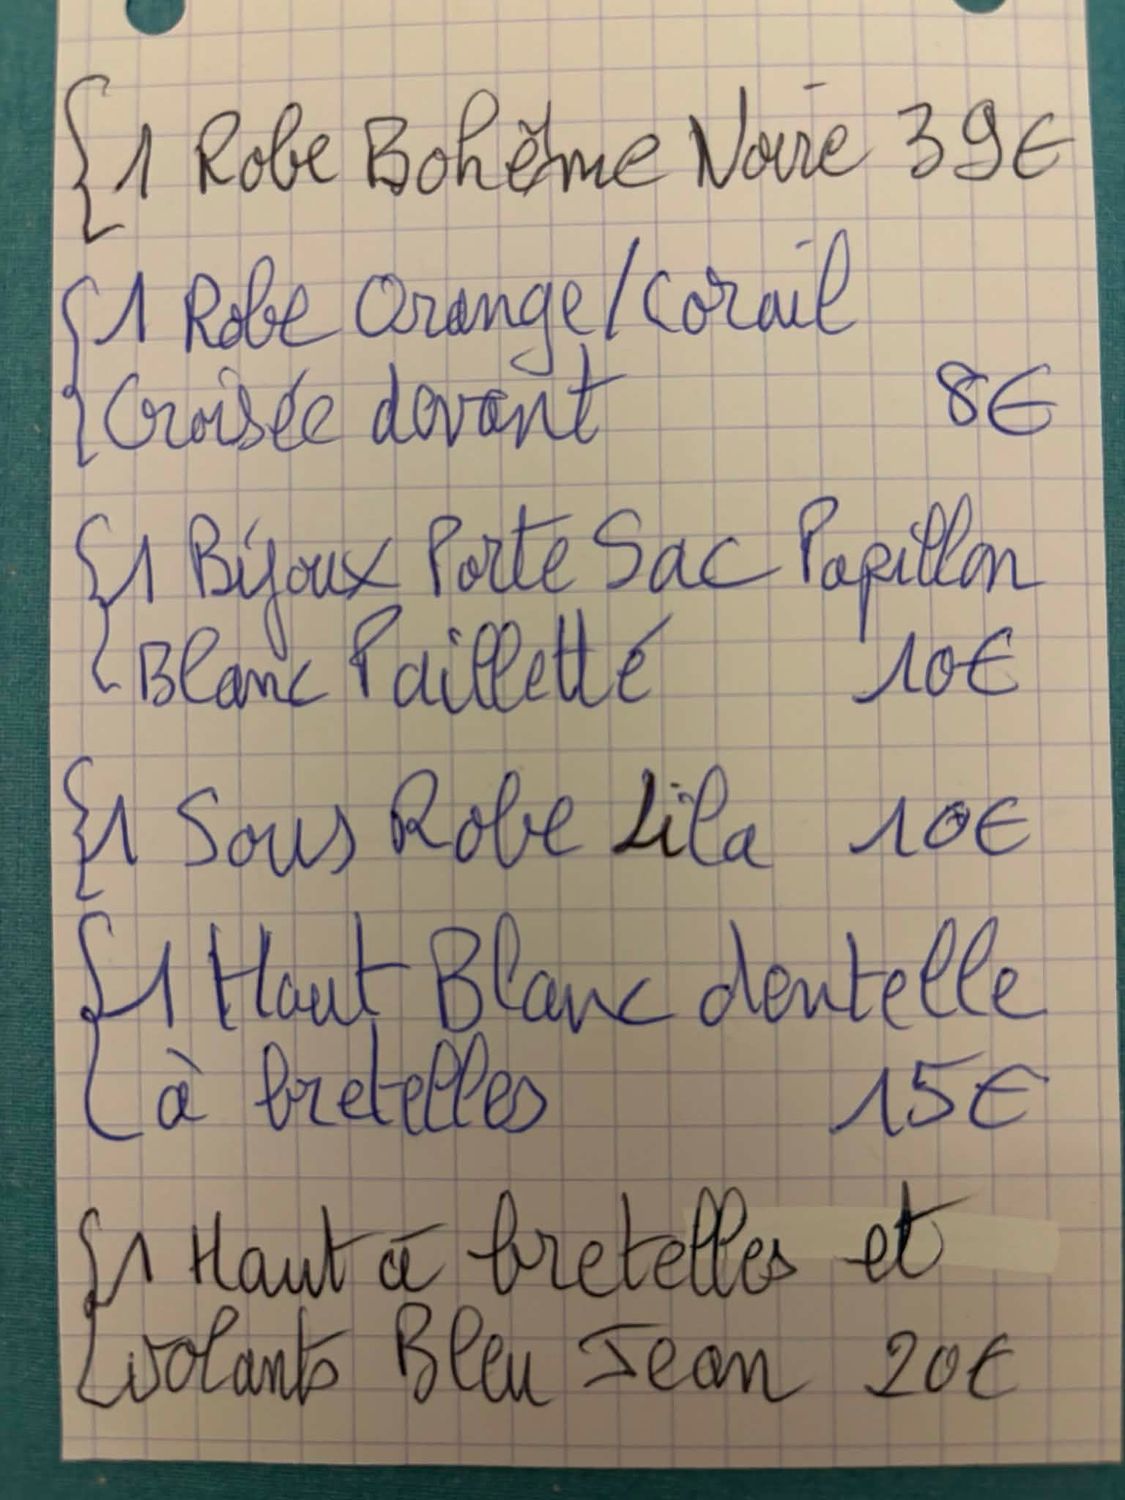 1 Robe Bohême Noire 39€
1 Robe Orange/Corail
Croisée devant 8€
1 Bijoux Porte Sac Papillon
Blanc Pailletté 10€
1 Sous Robe Lila 10€
1 Haut Blanc dentelle
à bretelles 15€
1 Haut à bretelles et
volants Bleu Jean 20€